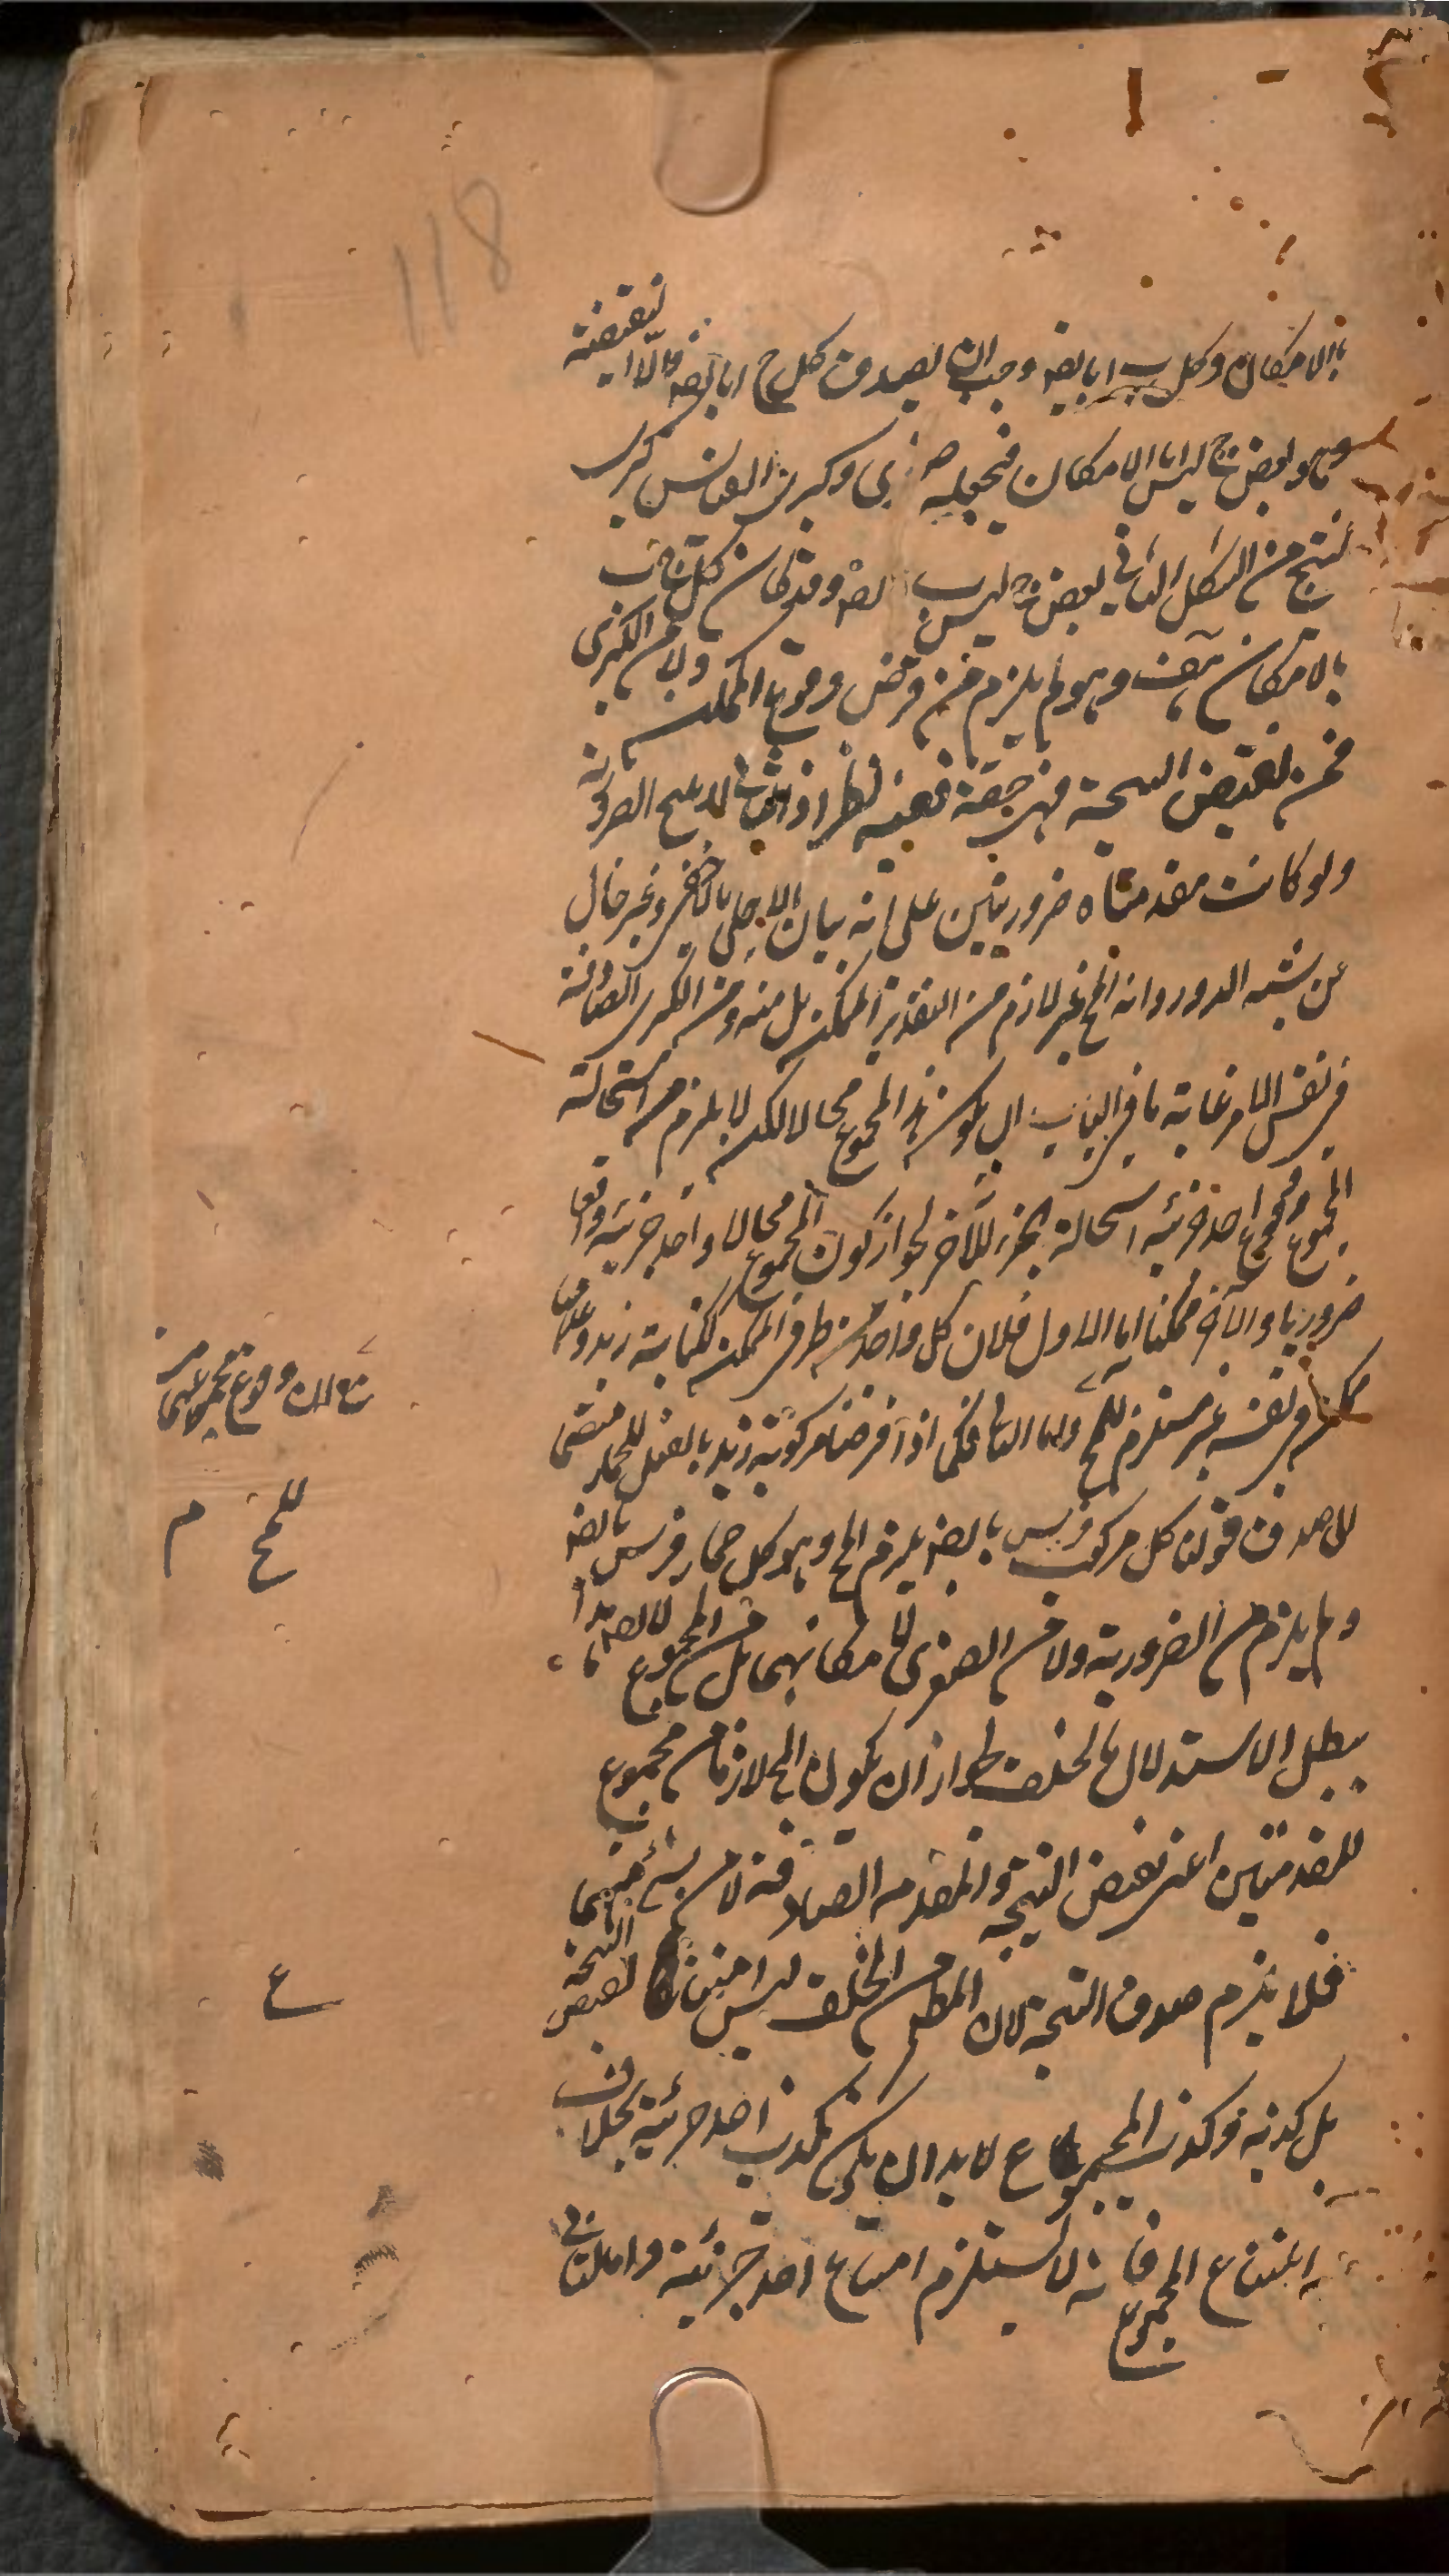 118
بالامكان وكل ب ا بالضه وجب ان يصدق كل ج ا بالضه والا لنقيضه
وهو بعض ج ليس ا بالامكان فنجعله صغرى وكبرى القياس كبرى
لينتج من الشكل الثانى بعض ج ليس ب بالضه وقد كان كل ج ب
بالامكان هف وهو لم يلزم من فرض وقوع الممكن ولا من الكبرى
فمن نقيض النتيجة فهى حقة ففيه نظر اذ الثانى لا ينتج الضرورية
ولو كانت مقدمتاه ضروريتين على انه بيان الاجلى بالاخفى وغير خال
عن شبه الدور وانه المح غير لازم من التقدير الممكن بل منه ومن الكبرى الصادقة
فى نفس الامر غاية ما فى الباب ان يكون هذا المجموع محالا لكن لا يلزم من استحالة
المجموع احد جزئيه استحالة الجزء الآخر لجواز كون المجموع محالا واحد جزئيه واقعا
ضروريا والآخر ممكنا اما الاول فلان كل واحد من طرفى الممكن ككتابة زيد وعدمها
ممكن فى نفسه غير مستلزم للمح واما الثانى فكما اذا فرضنا مركوبية زيد بالفعل للحمار منضما
الى صدق قولنا كل مركوب فرس بالضه يلزم المح وهو كل حمار فرس بالضه
ولم يلزم من الضرورية ولا من الصغرى لامكانهما بل من المجموع لا يقال هذا
يبطل الاستدلال بالخلف لجواز ان يكون المح لازما من مجموع
المقدمتين اعنى نقيض النتيجة والمقدمه الصادقة لا من شئ منهما
فلا يلزم صدق النتيجة لان المط من الخلف ليس امتناع نقيض النتيجة
بل كذبه وكذب المجموع لا بد ان يكون بكذب احد جزئيه بخلاف
امتناع المجموع فانه لا يستلزم امتناع احد جزئيه واما الثانى
مع ان وقوع مجموعهما
للمح م
ع